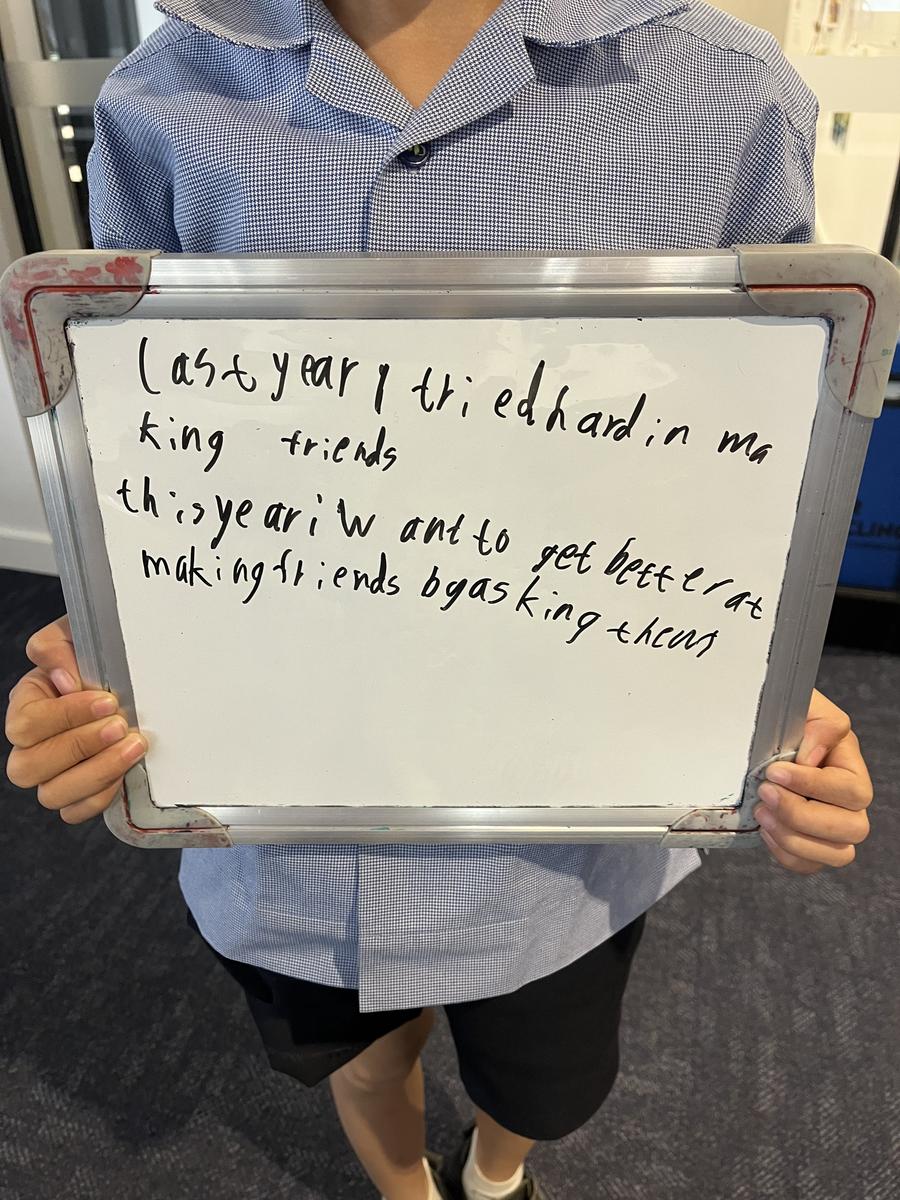 Last year I tried hard in ma
king friends
this year i want to get better at
making friends by asking them
CLING